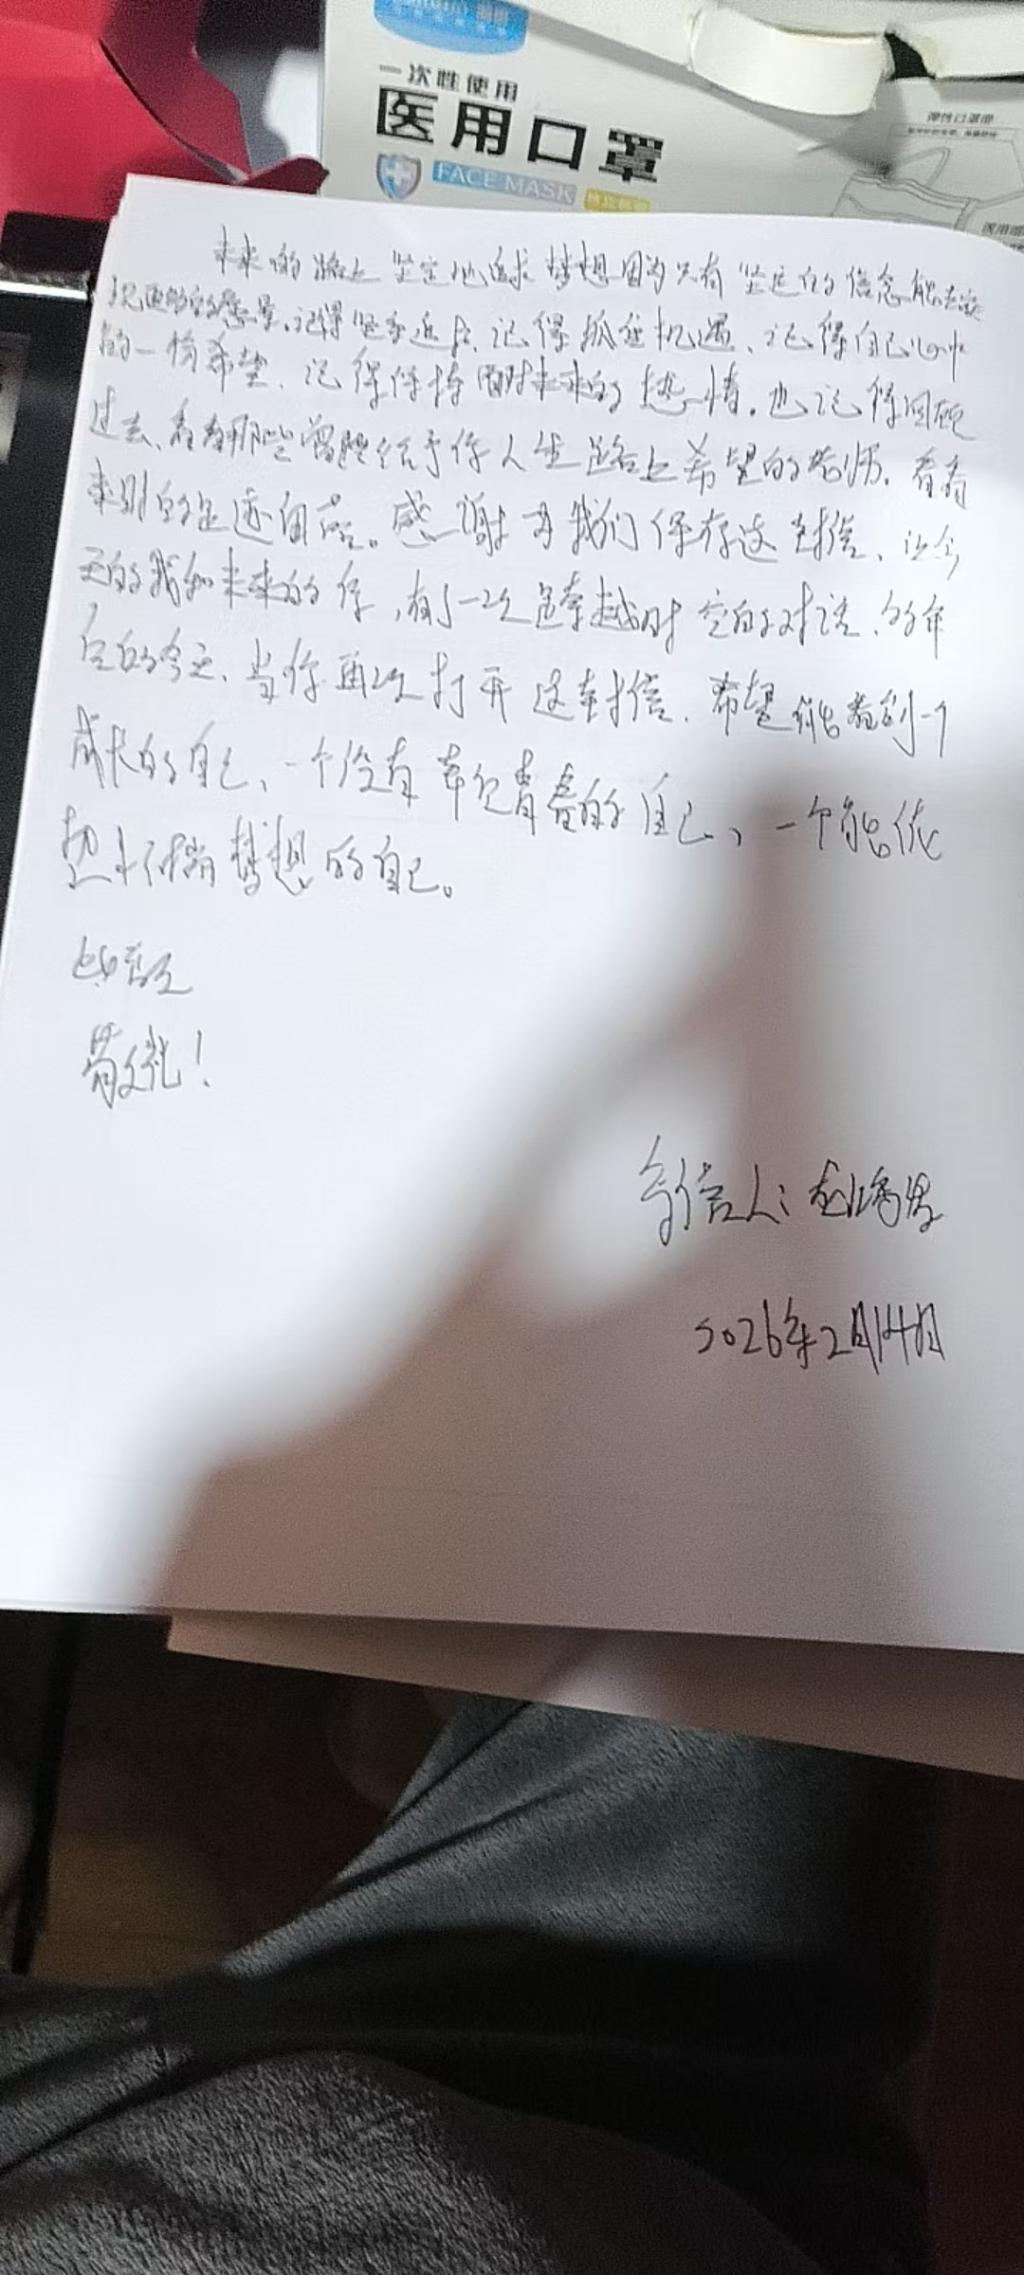 一次性使用
医用口罩
FACE MASK
弹性口罩带
未来的路上坚定地追求梦想因为只有坚定的信念能去实
现更好的愿景。记得坚守近启、记得抓住机遇、记得自己心中
的一份希望、记得保持面对未来的热情。也记得回顾
过去、看看那些曾经给予你人生路上希望的老师。看看
来时的足迹自启。感谢为我们保存这封信、让今
天的我和未来的你,有了一次跨越时空的对话、的年
后的今天、当你再次打开这封信、希望能看到一个
成长的自己、一个没有辜负青春的自己、一个能依
然怀揣梦想的自己。
此致
敬礼!
写信人:
2026年2月14日